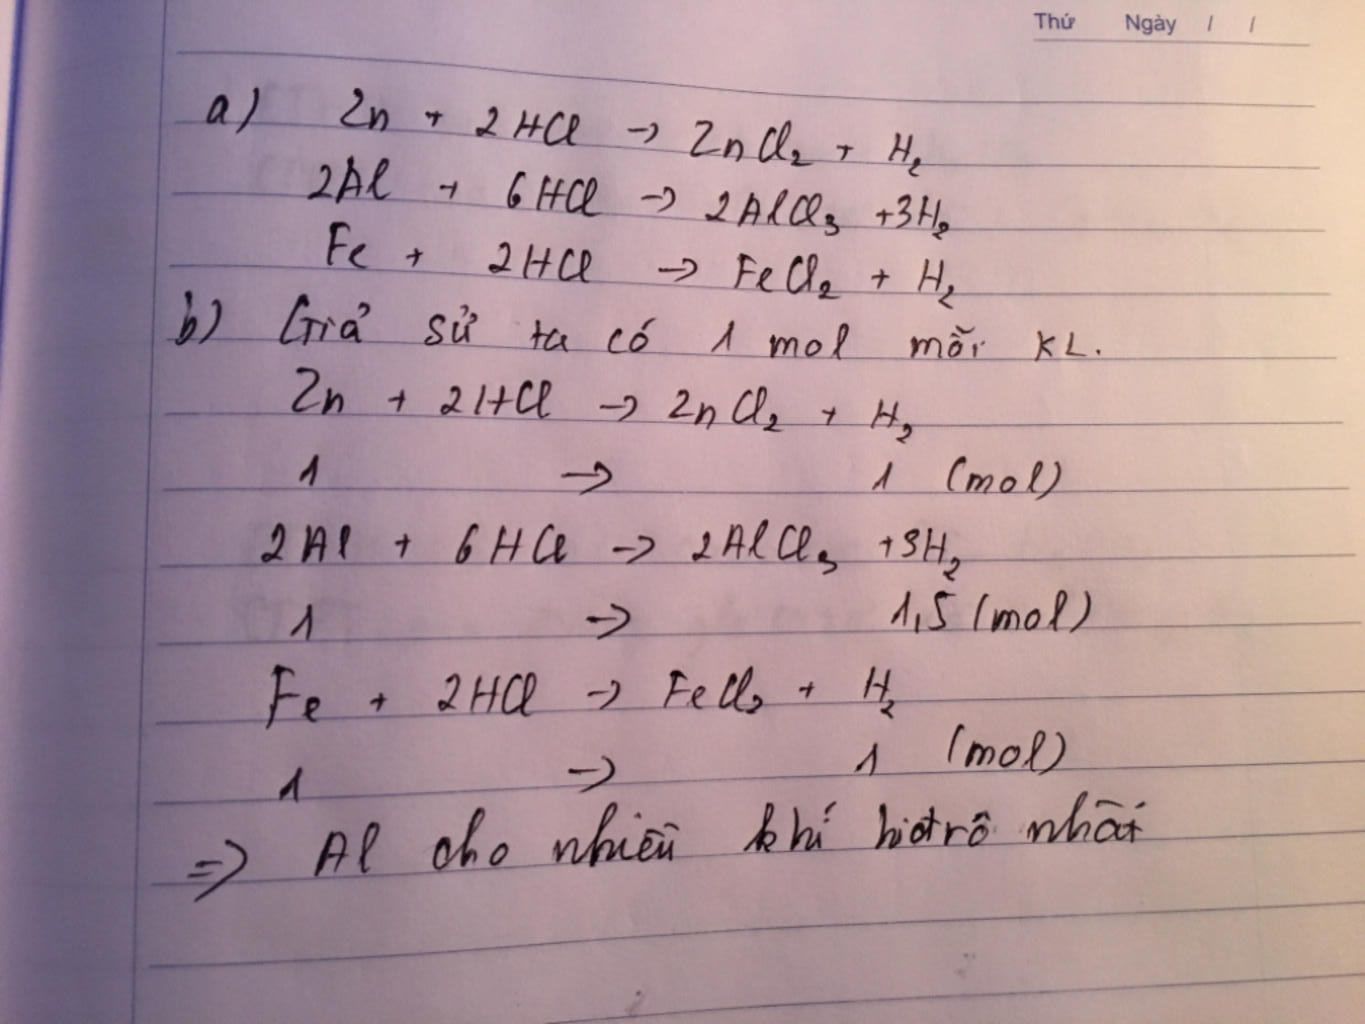 Thứ Ngày / /
a) Zn + 2HCl → ZnCl₂ + H₂
2Al + 6HCl → 2AlCl₃ +3H₂
Fe + 2HCl → FeCl₂ + H₂
b) Giả sử ta có 1 mol mỗi KL.
Zn + 2HCl → ZnCl₂ + H₂
1 → 1 (mol)
2Al + 6HCl → 2AlCl₃ +3H₂
1 → 1,5 (mol)
Fe + 2HCl → FeCl₂ + H₂
1 → 1 (mol)
=> Al cho nhiều khí hiđrô nhất